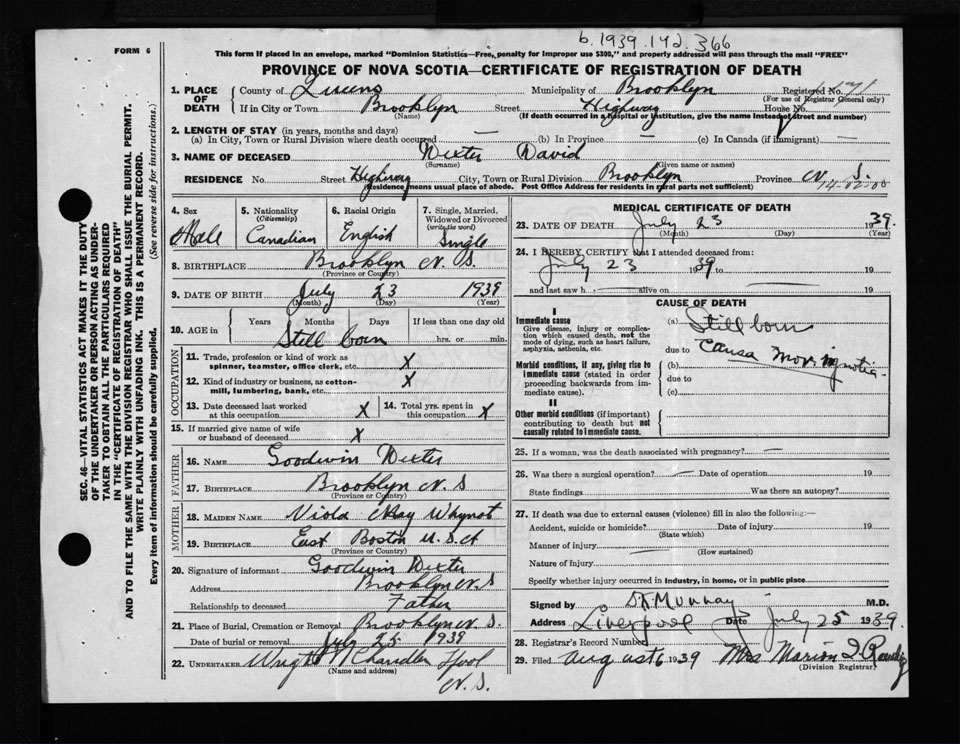 b.1939.142.366
FORM 6
This form if placed in an envelope, marked "Dominion Statistics—Free, penalty for improper use $300," and properly addressed will pass through the mail "FREE"
PROVINCE OF NOVA SCOTIA—CERTIFICATE OF REGISTRATION OF DEATH
SEC. 46—VITAL STATISTICS ACT MAKES IT THE DUTY
OF THE UNDERTAKER OR PERSON ACTING AS UNDER-
TAKER TO OBTAIN ALL THE PARTICULARS REQUIRED
IN THE "CERTIFICATE OF REGISTRATION OF DEATH"
AND TO FILE THE SAME WITH THE DIVISION REGISTRAR WHO SHALL ISSUE THE BURIAL PERMIT.
WRITE PLAINLY WITH UNFADING INK. THIS IS A PERMANENT RECORD.
Every item of information should be carefully supplied. (See reverse side for instructions.)
1. PLACE OF DEATH County of Queens Municipality of Brooklyn Registered No.
(For use of Registrar General only)
If in City or Town Brooklyn Street Highway House No.
(Name) (If death occurred in a hospital or institution, give the name instead of street and number)
2. LENGTH OF STAY (in years, months and days)
(a) In City, Town or Rural Division where death occurred — (b) In Province (c) In Canada (if immigrant) —
3. NAME OF DECEASED Dexter David
(Surname) (Given name or names)
RESIDENCE No. Street Highway City, Town or Rural Division Brooklyn Province N. S.
(Residence means usual place of abode. Post Office Address for residents in rural parts not sufficient) 14-02-00
4. Sex Male
5. Nationality (Citizenship) Canadian
6. Racial Origin English
7. Single, Married, Widowed or Divorced (write the word) Single
8. BIRTHPLACE Brooklyn N. S.
(Province or Country)
9. DATE OF BIRTH July 23 1939
(Month) (Day) (Year)
10. AGE in Years Months Days If less than one day old
Still born hrs. or min.
OCCUPATION
11. Trade, profession or kind of work as spinner, teamster, office clerk, etc. X
12. Kind of industry or business, as cotton-mill, lumbering, bank, etc. X
13. Date deceased last worked at this occupation X
14. Total yrs. spent in this occupation X
15. If married give name of wife or husband of deceased X
FATHER
16. NAME Goodwin Dexter
17. BIRTHPLACE Brooklyn N. S
(Province or Country)
MOTHER
18. MAIDEN NAME Viola May Whynot
19. BIRTHPLACE East Boston U. S. A
(Province or Country)
20. Signature of informant Goodwin Dexter
Address Brooklyn N. S
Relationship to deceased Father
21. Place of Burial, Cremation or Removal Brooklyn N. S.
Date of burial or removal July 25 1939
22. UNDERTAKER Wright Chandler Lpool
(Name and address) N. S.
MEDICAL CERTIFICATE OF DEATH
23. DATE OF DEATH July 23 1939.
(Month) (Day) (Year)
24. I HEREBY CERTIFY that I attended deceased from:
July 23 1939 to 19
and last saw h alive on 19
CAUSE OF DEATH
I
Immediate cause
Give disease, injury or complication which caused death, not the mode of dying, such as heart failure, asphyxia, asthenia, etc.
(a) Still born
due to Causa mor. ignotia
Morbid conditions, if any, giving rise to immediate cause (stated in order proceeding backwards from immediate cause).
(b)
due to
(c)
II
Other morbid conditions (if important) contributing to death but not causally related to immediate cause.
25. If a woman, was the death associated with pregnancy? —
26. Was there a surgical operation? — Date of operation 19
State findings Was there an autopsy?
27. If death was due to external causes (violence) fill in also the following:—
Accident, suicide or homicide? Date of injury 19
(State which)
Manner of injury
(How sustained)
Nature of injury
Specify whether injury occurred in industry, in home, or in public place
Signed by Murray M.D.
Address Liverpool Date July 25 1939.
28. Registrar's Record Number
29. Filed August 6 1939 Mrs Marion
(Division Registrar)